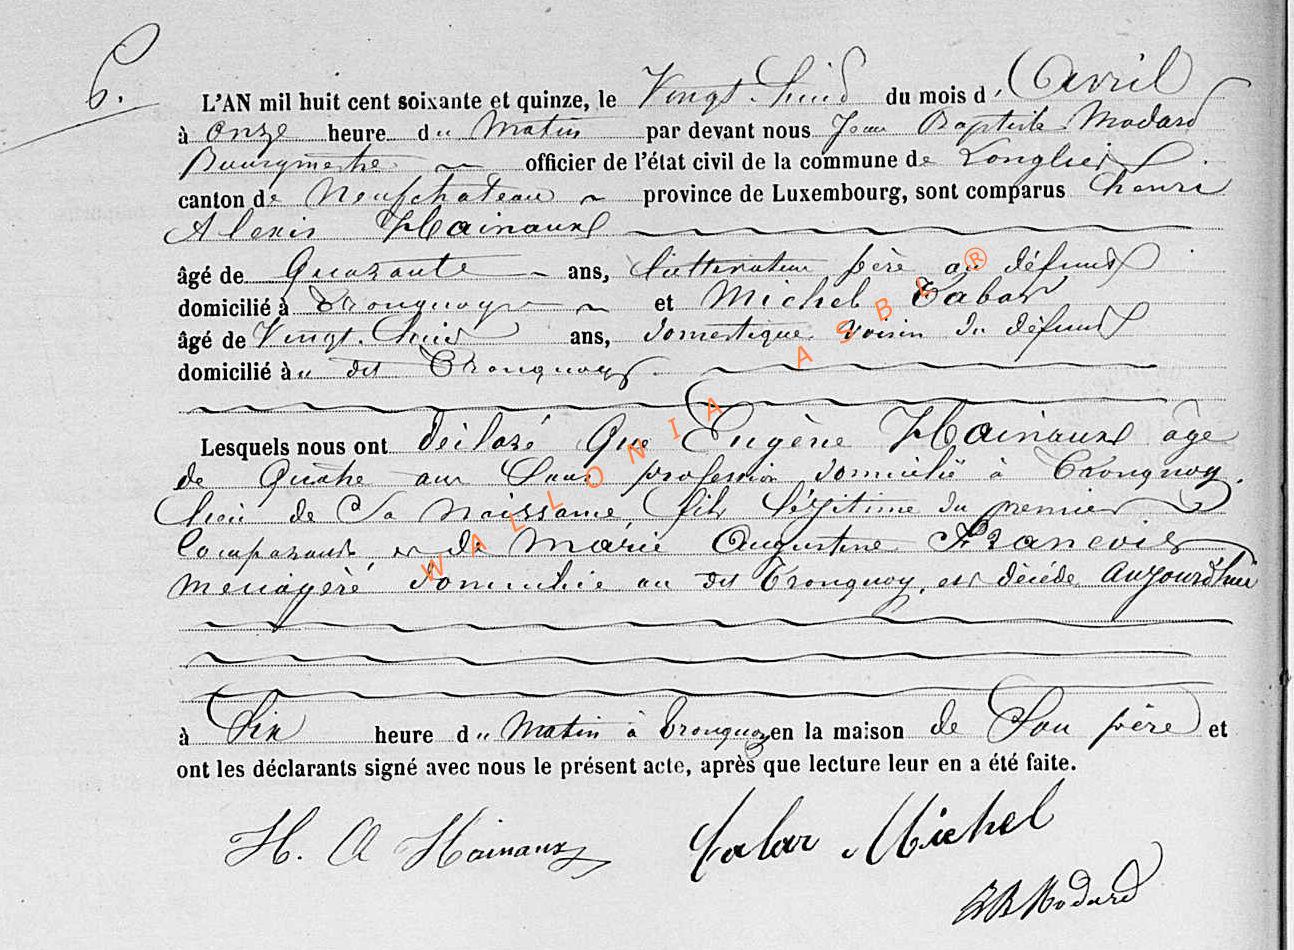 6.
L'AN mil huit cent soixante et quinze, le Vingt-huit du mois d' Avril
à onze heure du Matin par devant nous Jean Baptiste Modard
Bourgmestre officier de l'état civil de la commune de Longlier
canton de Neufchateau province de Luxembourg, sont comparus henri
Alexis Hainaux
âgé de Quarante ans, Cultivateur père au défunt
domicilié à Tronquoy et Michel Tabar
âgé de Vingt-huit ans, domestique voisin du défunt
domicilié au dit Tronquoy
Lesquels nous ont déclaré Que Eugène Hainaux âgé
de Quatre ans Sans profession domicilié à Tronquoy
lieu de Sa Naissance, fils légitime du premier
Comparant et de Marie Augustine Francois
menagère domiciliée au dit Tronquoy, est décédé aujourd'hui
à Six heure du Matin à Tronquoy en la maison de Son père et
ont les déclarants signé avec nous le présent acte, après que lecture leur en a été faite.
H. A Hainaux Tabar Michel
JB Modard
WALLONIA ASBL ®